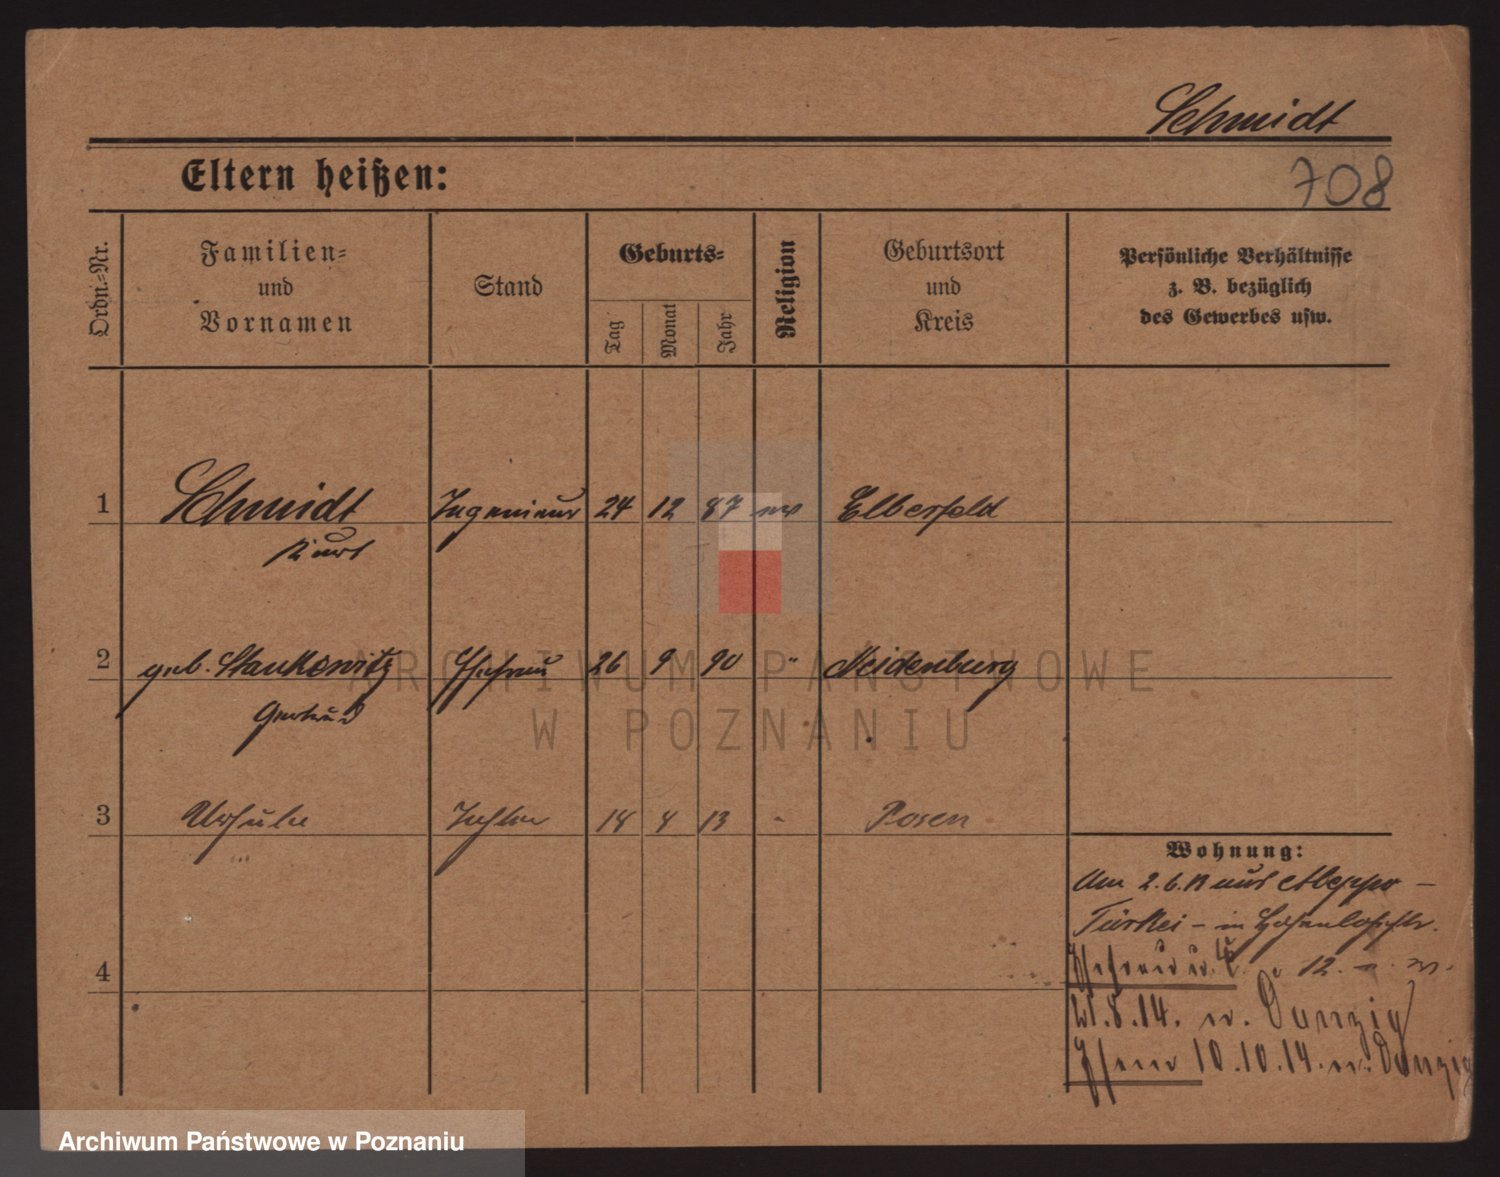 Schmidt
Eltern heißen:
708
Ordn.-Nr.
Familien-
und
Vornamen
Stand
Geburts-
Tag
Monat
Jahr
Religion
Geburtsort
und
Kreis
Persönliche Verhältnisse
z. B. bezüglich
des Gewerbes usw.
1 Schmidt Ingenieur 24 12 87 ev Elberfeld
Kurt
2 geb. Stankowitz Ehefrau 26 9 90 " Neidenburg
Gertrud
3 Ursula Tochter 4 13 Posen
4
Wohnung:
Am 2.6. aus Aleppo -
Türkei - in
Ehefrau u. 12.
21.8.14. n. Danzig
10.10.14. n. Danzig
ARCHIWUM PAŃSTWOWE
W POZNANIU
Archiwum Państwowe w Poznaniu